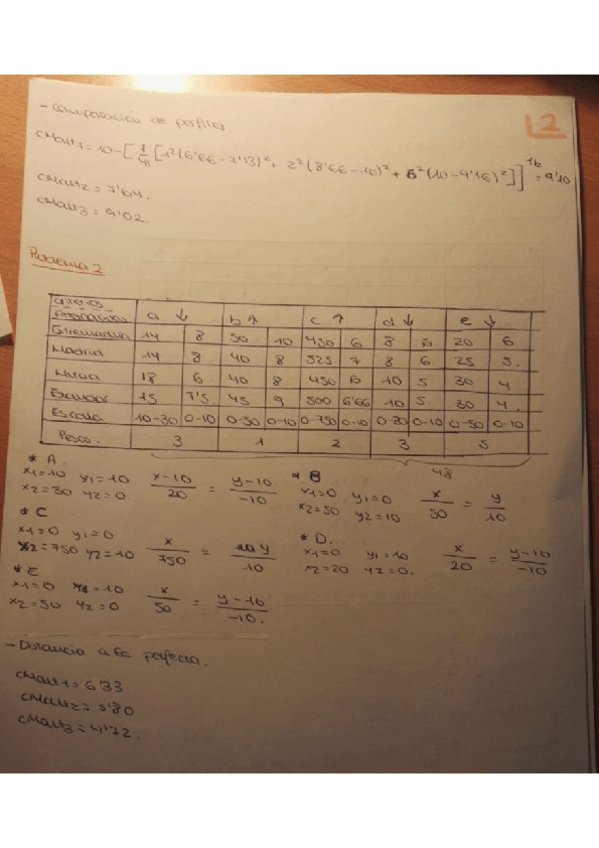 - Comparación de perfiles.
2
CMalt1 = 10 - [1/41 [1²(6'66 - 7'13)² + 2²(8'66 - 10)² + 6²(10 - 9'16)²]]^1/2 = 9'10
CMalt2 = 7'64.
CMalt3 = 9'02.
Problema 2
Criterios
Alternativas a ↓ b ↑ c ↑ d ↓ e ↓
Extremadura 14 8 50 10 450 6 8 6 20 6
Madrid 14 8 40 8 525 7 8 6 25 5.
Murcia 18 6 40 8 450 6 10 5 30 4
15 7'5. 45 9 500 6'66 10 5. 30 4.
Escala 10-30 0-10 0-50 0-10 0-750 0-10 0-20 0-10 0-50 0-10
Pesos. 3 1 2 3 5
48
* A.
x1=10 y1=10 x-10/20 = y-10/-10
x2=30 y2=0.
* B
x1=0 y1=0 x/50 = y/10
x2=50 y2=10
* C
x1=0 y1=0 x/750 = y/10
x2=750 y2=10
* D.
x1=0 y1=10 x/20 = y-10/-10
x2=20 y2=0.
* E
x1=0 y1=10 x/50 = y-10/-10.
x2=50 y2=0
- Distancia a la perfecta.
CMalt1 = 6'33
CMalt2 = 5'80
CMalt3 = 4'72.